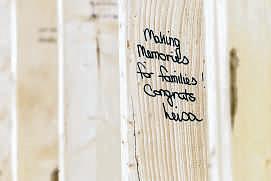 Making
Memories
for families!
Congrats
Leisa